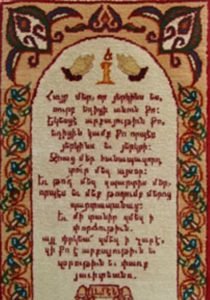 Հայր մեր, որ յերկինս ես,
սուրբ եղիցի անուն քո:
Եկեսցէ արքայութիւն քո,
եղիցին կամք քո որպէս
յերկինս եւ յերկրի:
մեր հանապազորդ
տուր մեզ այսօր:
Եւ թող մեզ զպարտիս մեր,
որպէս եւ մեք թողումք մերոց
պարտապանաց:
Եւ մի տանիր զմեզ ի
փորձութիւն,
այլ փրկեա զմեզ ի չարէ,
զի քո է արքայութիւն եւ
զօրութիւն եւ փառք
յաւիտեանս.